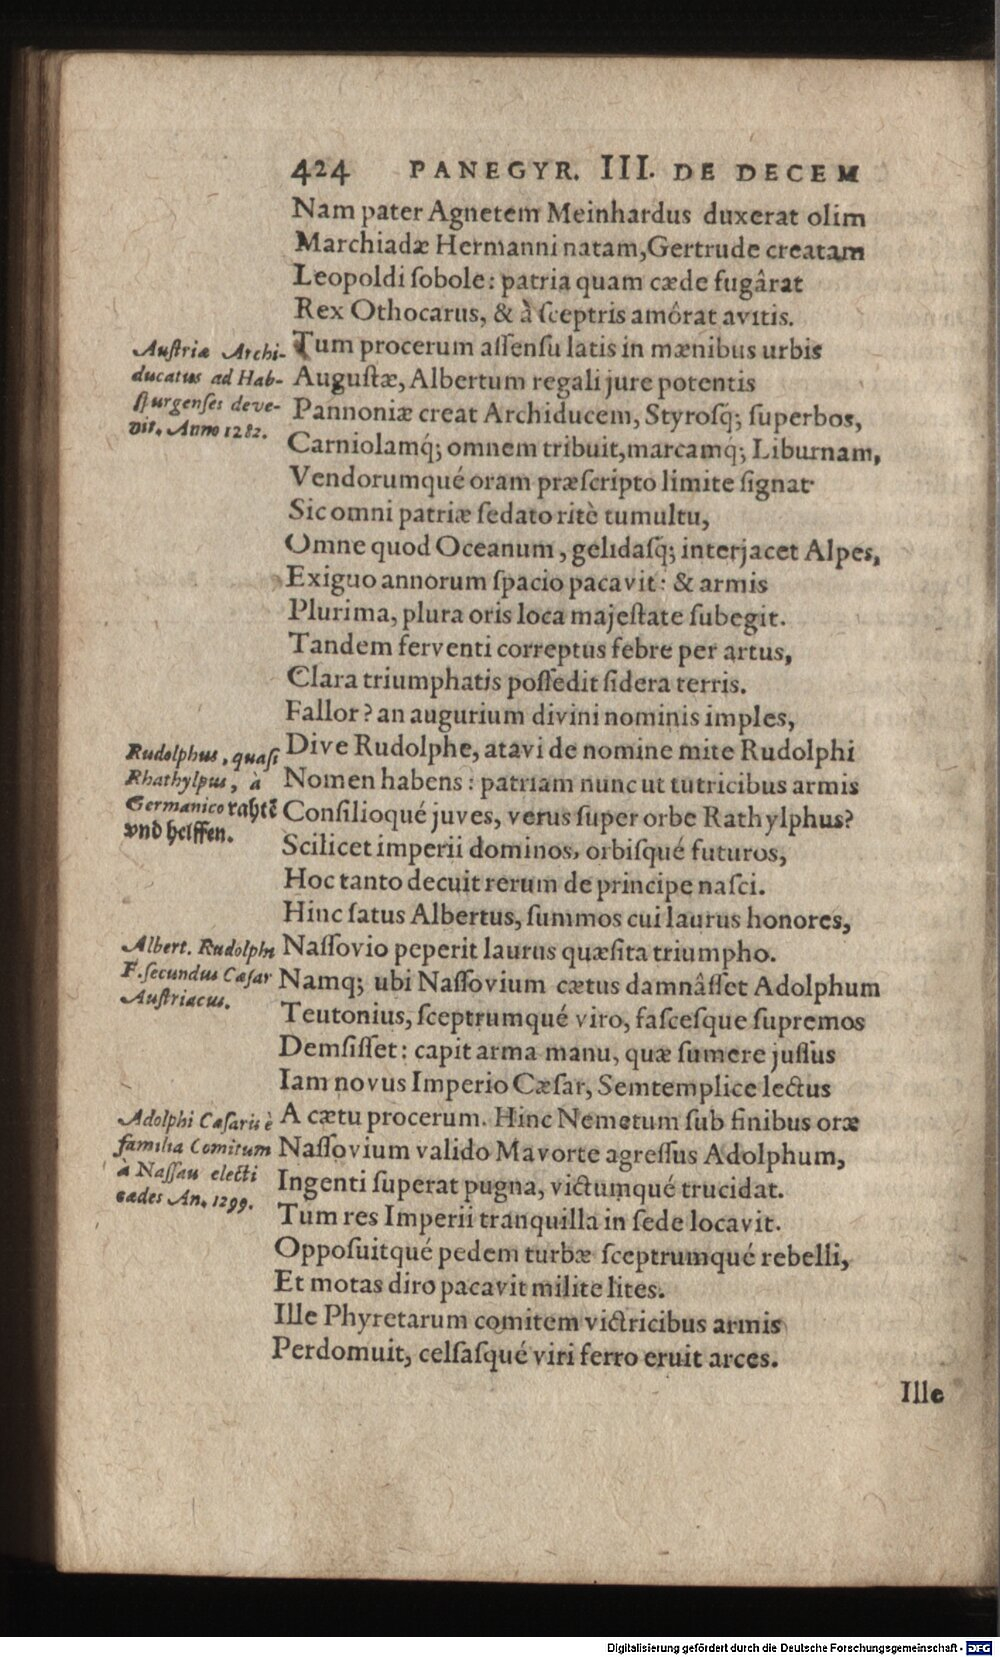 424 PANEGYR. III. DE DECEM
Nam pater Agnetem Meinhardus duxerat olim
Marchiadæ Hermanni natam, Gertrude creatam
Leopoldi ſobole: patria quam cæde fugârat
Rex Othocarus, & à ſceptris amôrat avitis.
Tum procerum aſſenſu latis in mænibus urbis
Auguſtæ, Albertum regali jure potentis
Pannoniæ creat Archiducem, Styroſq́; ſuperbos,
Carniolamq́; omnem tribuit, marcamq́; Liburnam,
Vendorumqué oram præſcripto limite ſignat
Sic omni patriæ ſedato ritè tumultu,
Omne quod Oceanum, gelidaſq́; interjacet Alpes,
Exiguo annorum ſpacio pacavit: & armis
Plurima, plura oris loca majeſtate ſubegit.
Tandem ferventi correptus febre per artus,
Clara triumphatis poſſedit ſidera terris.
Fallor? an augurium divini nominis imples,
Dive Rudolphe, atavi de nomine mite Rudolphi
Nomen habens: patriam nunc ut tutricibus armis
Conſilioqué juves, verus ſuper orbe Rathylphus?
Scilicet imperii dominos, orbiſqué futuros,
Hoc tanto decuit rerum de principe naſci.
Hinc ſatus Albertus, ſummos cui laurus honores,
Naſſovio peperit laurus quæſita triumpho.
Namq; ubi Naſſovium cætus damnâſſet Adolphum
Teutonius, ſceptrumqué viro, faſceſque ſupremos
Demſiſſet: capit arma manu, quæ ſumere juſſus
Iam novus Imperio Cæſar, Semtemplice lectus
A cætu procerum. Hinc Nemetum ſub finibus oræ
Naſſovium valido Mavorte agreſſus Adolphum,
Ingenti ſuperat pugna, victumqué trucidat.
Tum res Imperii tranquilla in ſede locavit.
Oppoſuitqué pedem turbæ ſceptrumqué rebelli,
Et motas diro pacavit milite lites.
Ille Phyretarum comitem victricibus armis
Perdomuit, celſaſqué viri ferro eruit arces.
Ille
Auſtriæ Archi-
ducatus ad Hab-
ſpurgenſes deve-
nit. Anno 1282.
Rudolphus, quaſi
Rhathylpus, à
Germanico rahtẽ
vnd helffen.
Albert. Rudolphi
F. ſecundus Cæſar
Auſtriacus.
Adolphi Cæſaris è
familia Comitum
à Naſſau electi
cædes An. 1299.
Digitalisierung gefördert durch die Deutsche Forschungsgemeinschaft - DFG